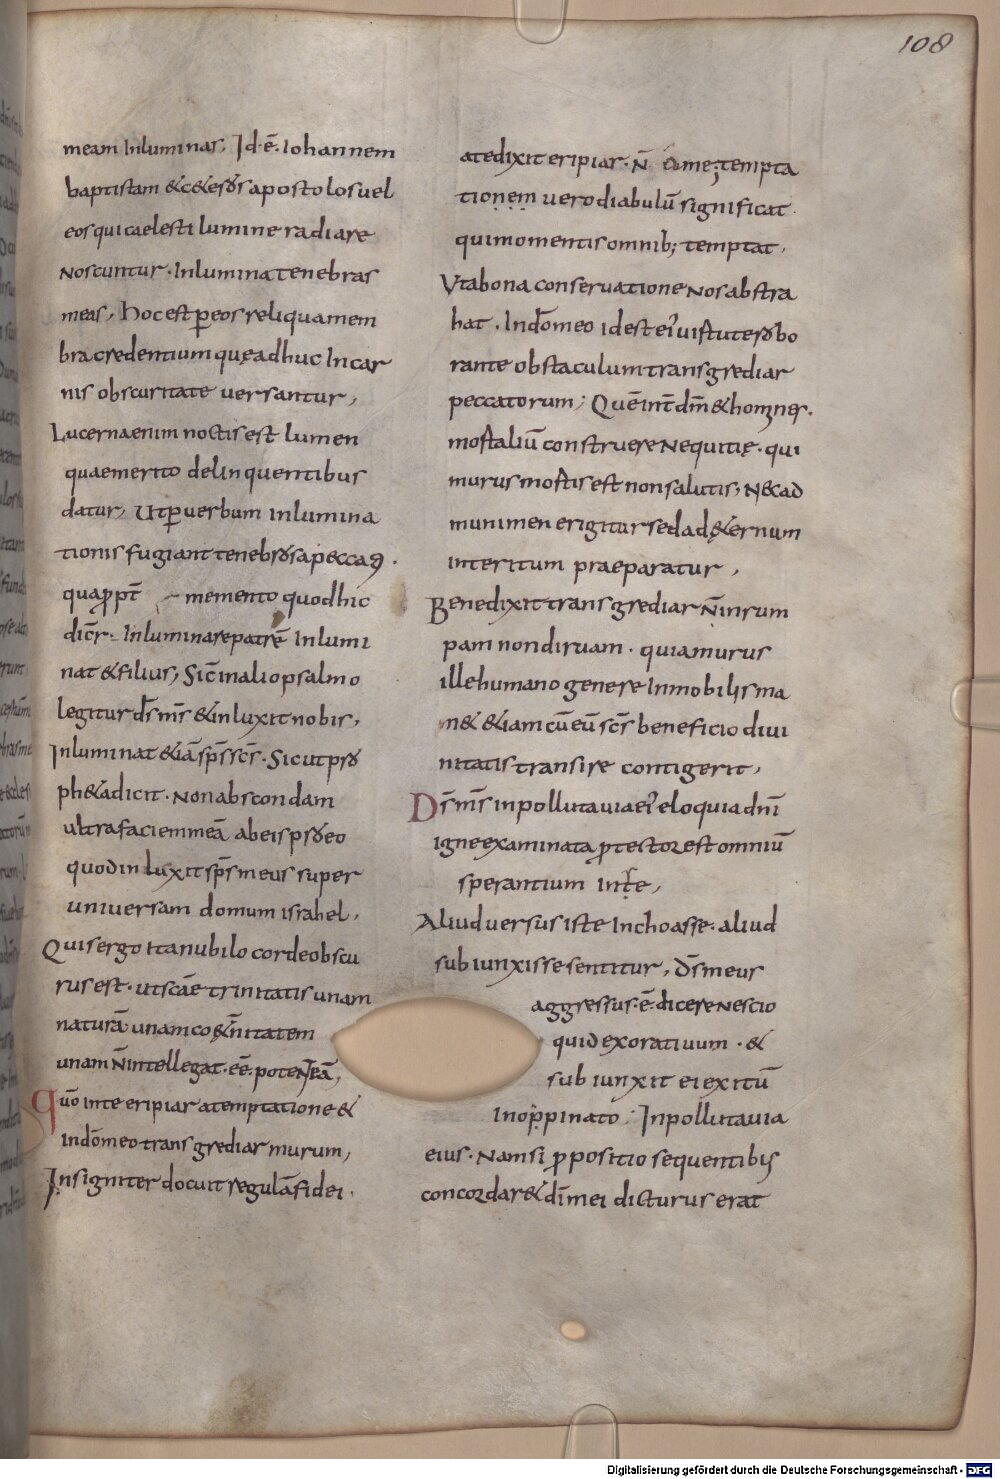 108
meam Inluminas; Id·ē·Iohannem
baptistam &c&eros apostolos uel
eos qui caelesti lumine radiare
Noscuntur· Inlumina tenebras
meas, hoc est ꝑ eos reliqua mem
bra credentium quę adhuc In car
nis obscuritate uersantur,
Lucerna enim noctis est lumen
quae merito delinquentibus
datur, Ut ꝑ uerbum inlumina
tionis fugiant tenebrosa pecca
quapp̄t memento quod hic
dicr̄· Inluminare patrē Inlumi
nat & filius; Sic̄ in alio psalmo
legitur d̄s n̄r̄s & inluxit nobis,
Inluminat &iā sp̄s sc̄s· Sicut pro
ph&a dicit· Non abscondam
ultra faciem meā ab eis pro eo
quod inluxit sp̄s meus super
uniuersam domum israhel,
Quis ergo ita nubilo corde obscu
rus est· ut sc̄ae trinitatis unam
naturā unam co&n̄itatem
unam n̄ intellegat·ēē·potentiā,
Quō in te eripiar a temptatione &
in d̄o meo transgrediar murum,
Insigniter docuit regulā fidei·
a te dixit eripiar· N̄ a me; tempta
tionem uero diabulū significat·
qui momentis omnib; temptat,
Vt a bona conseruatione Nos abstra
hat· In d̄o meo id est ei' uirtute robo
rante obstaculum transgrediar
peccatorum; Quē int̄ d̄m & homines·
mortaliū construere Nequitię· qui
murus mortis est non salutis, Nec ad
munimen erigitur sed ad &ernum
interitum praeparatur,
Bene dixit transgrediar N̄ inrum
pam non diruam· quia murus
ille humano genere Inmobilis ma
n& &iam cū eū sc̄s beneficio diui
nitatis transire contigerit,
D̄s m̄s inpolluta uia ei' eloquia dn̄i
igne examinata protector est omniū
sperantium in te,
Aliud uersus iste Inchoasse· aliud
subiunxisse sentitur, D̄s meus
aggressus·ē·dicere Nescio
quid exoratiuum· &
subiunxit ei exitū
inoppinato; Inpolluta uia
eius· Nam si propositio sequentibus
concordar& d̄i mei dicturus erat
Digitalisierung gefördert durch die Deutsche Forschungsgemeinschaft - DFG